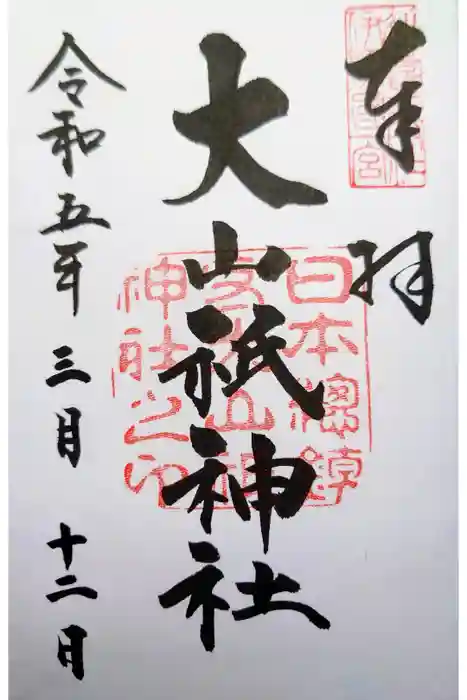 奉拝
日本總鎮
大山祇神社
神社之印
令和五年三月十二日